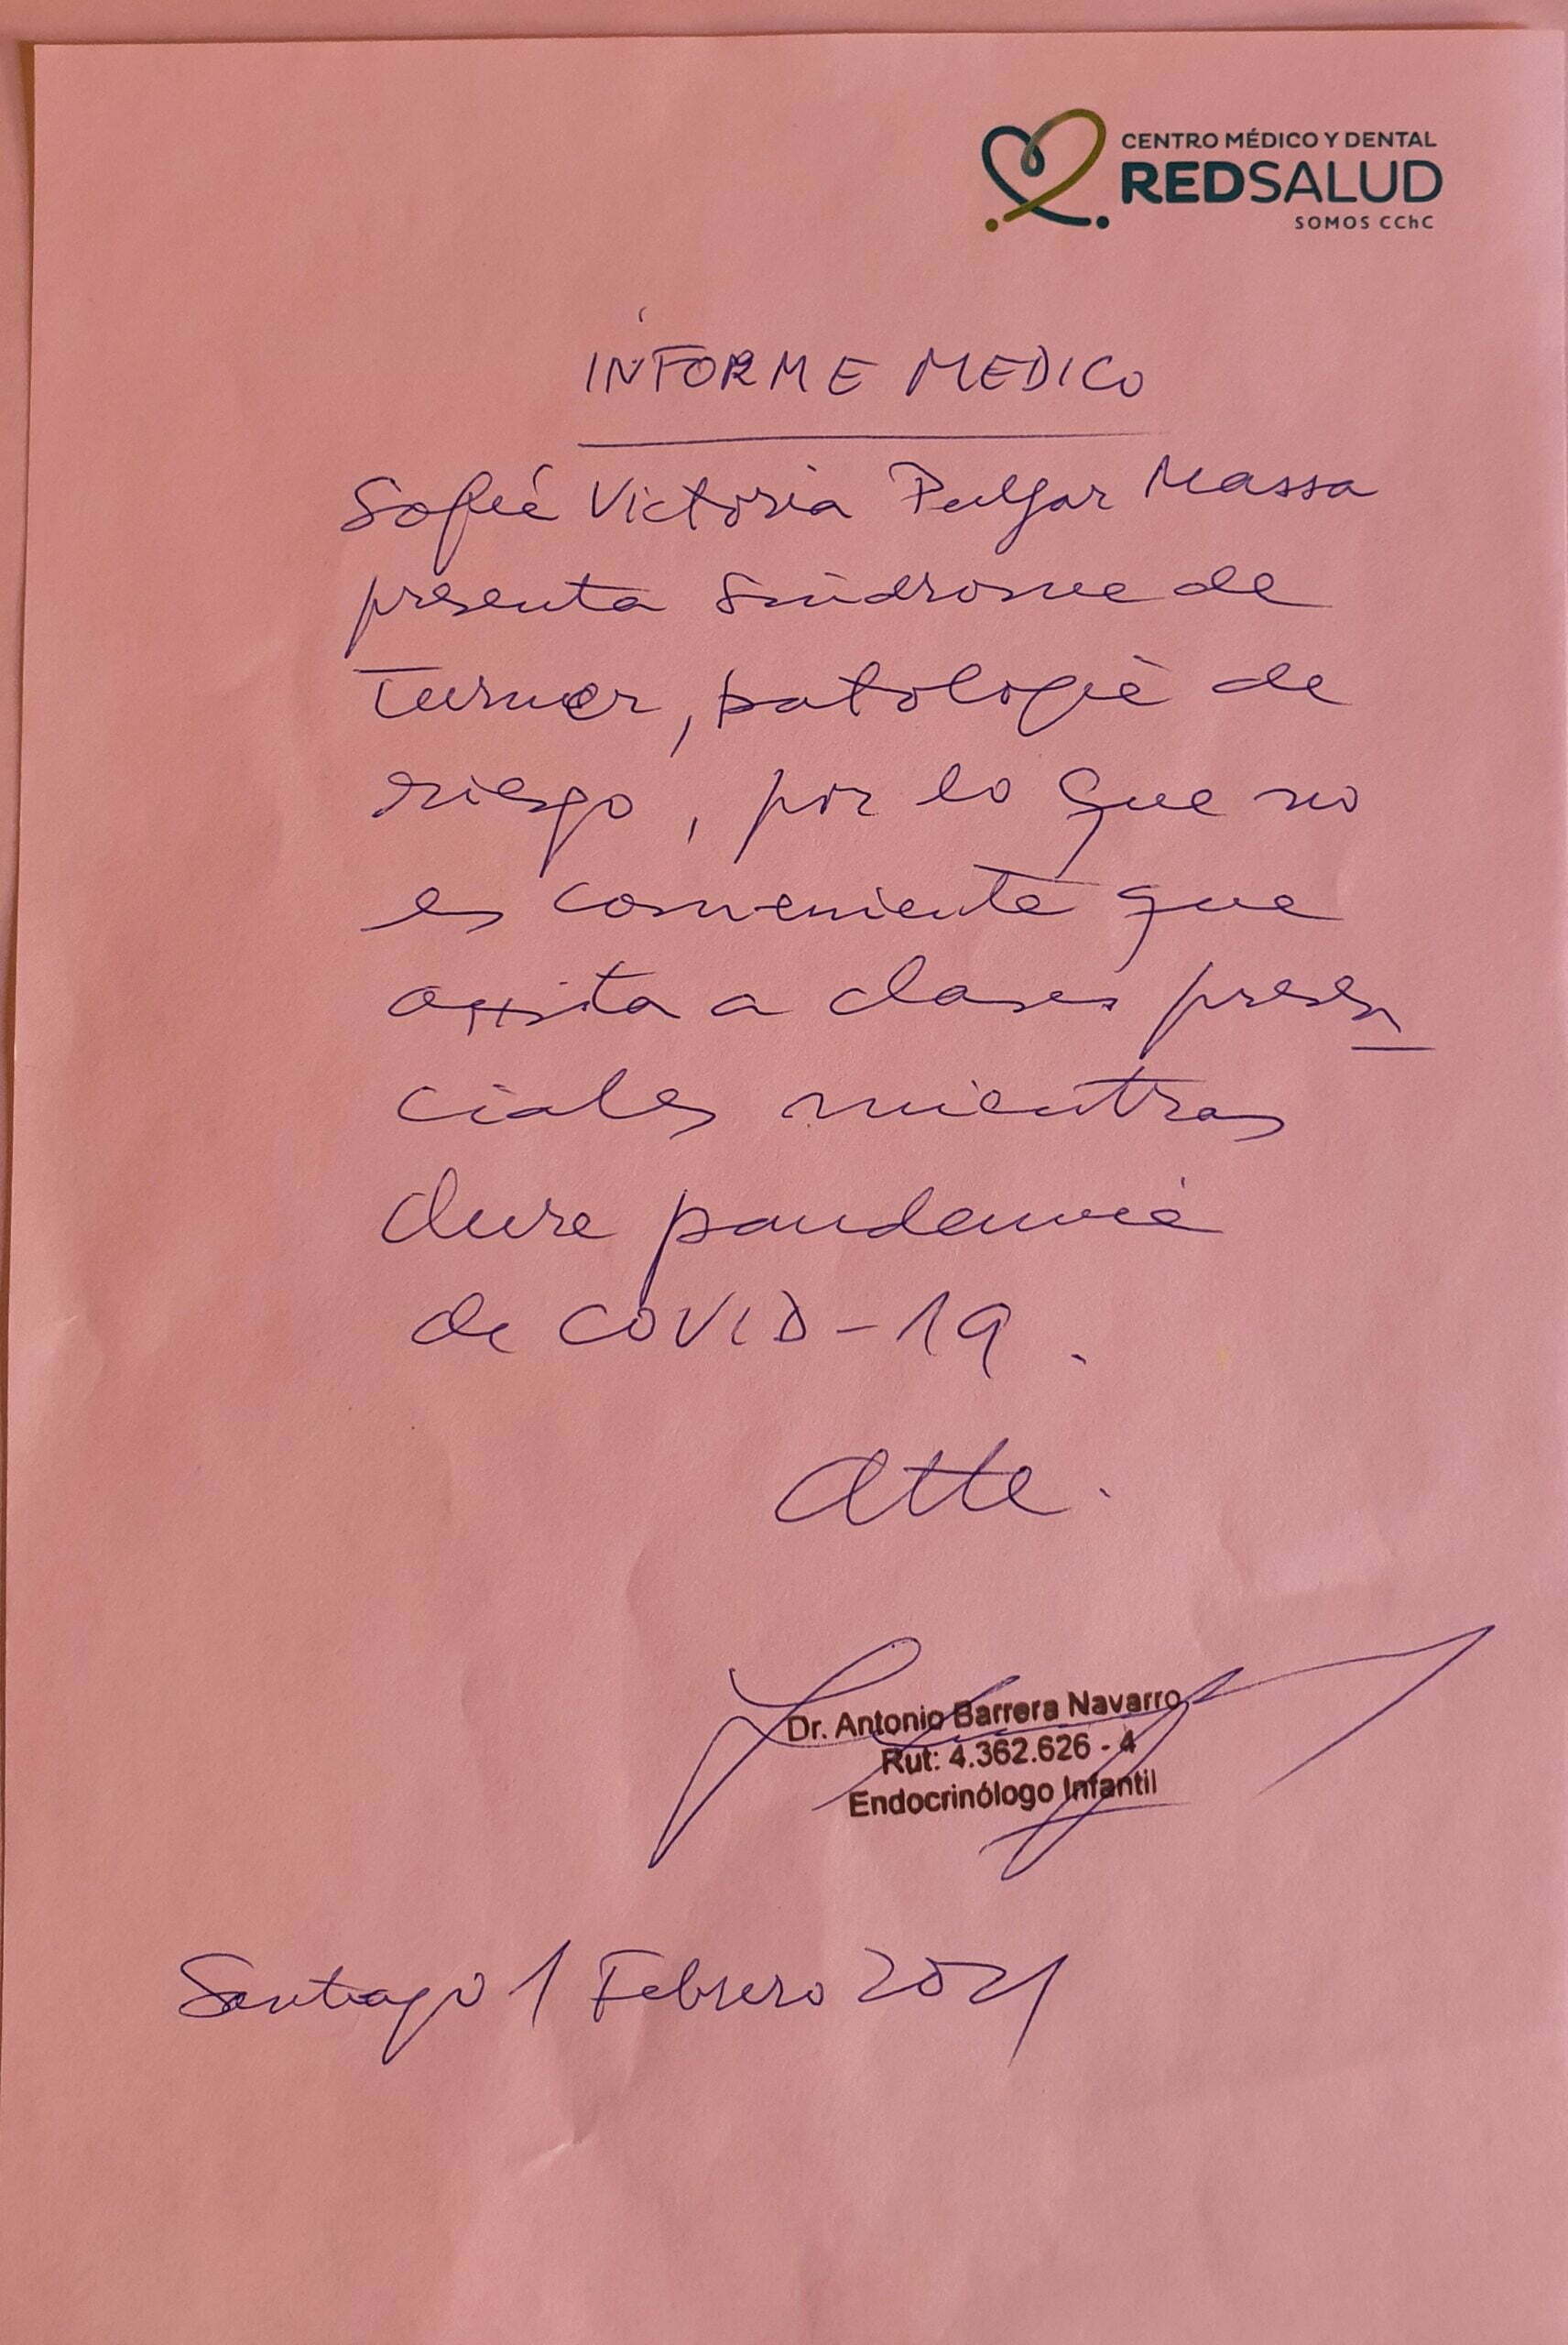 CENTRO MÉDICO Y DENTAL
REDSALUD
SOMOS CChC
INFORME MEDICO
Sofía Victoria Pulgar Massa
presenta Síndrome de
Turner, patología de
riesgo, por lo que no
es conveniente que
asista a clases presen
ciales mientras
dure pandemia
de COVID-19.
Atte.
Dr. Antonio Barrera Navarro
Rut: 4.362.626 - 4
Endocrinólogo Infantil
Santiago 1 Febrero 2021